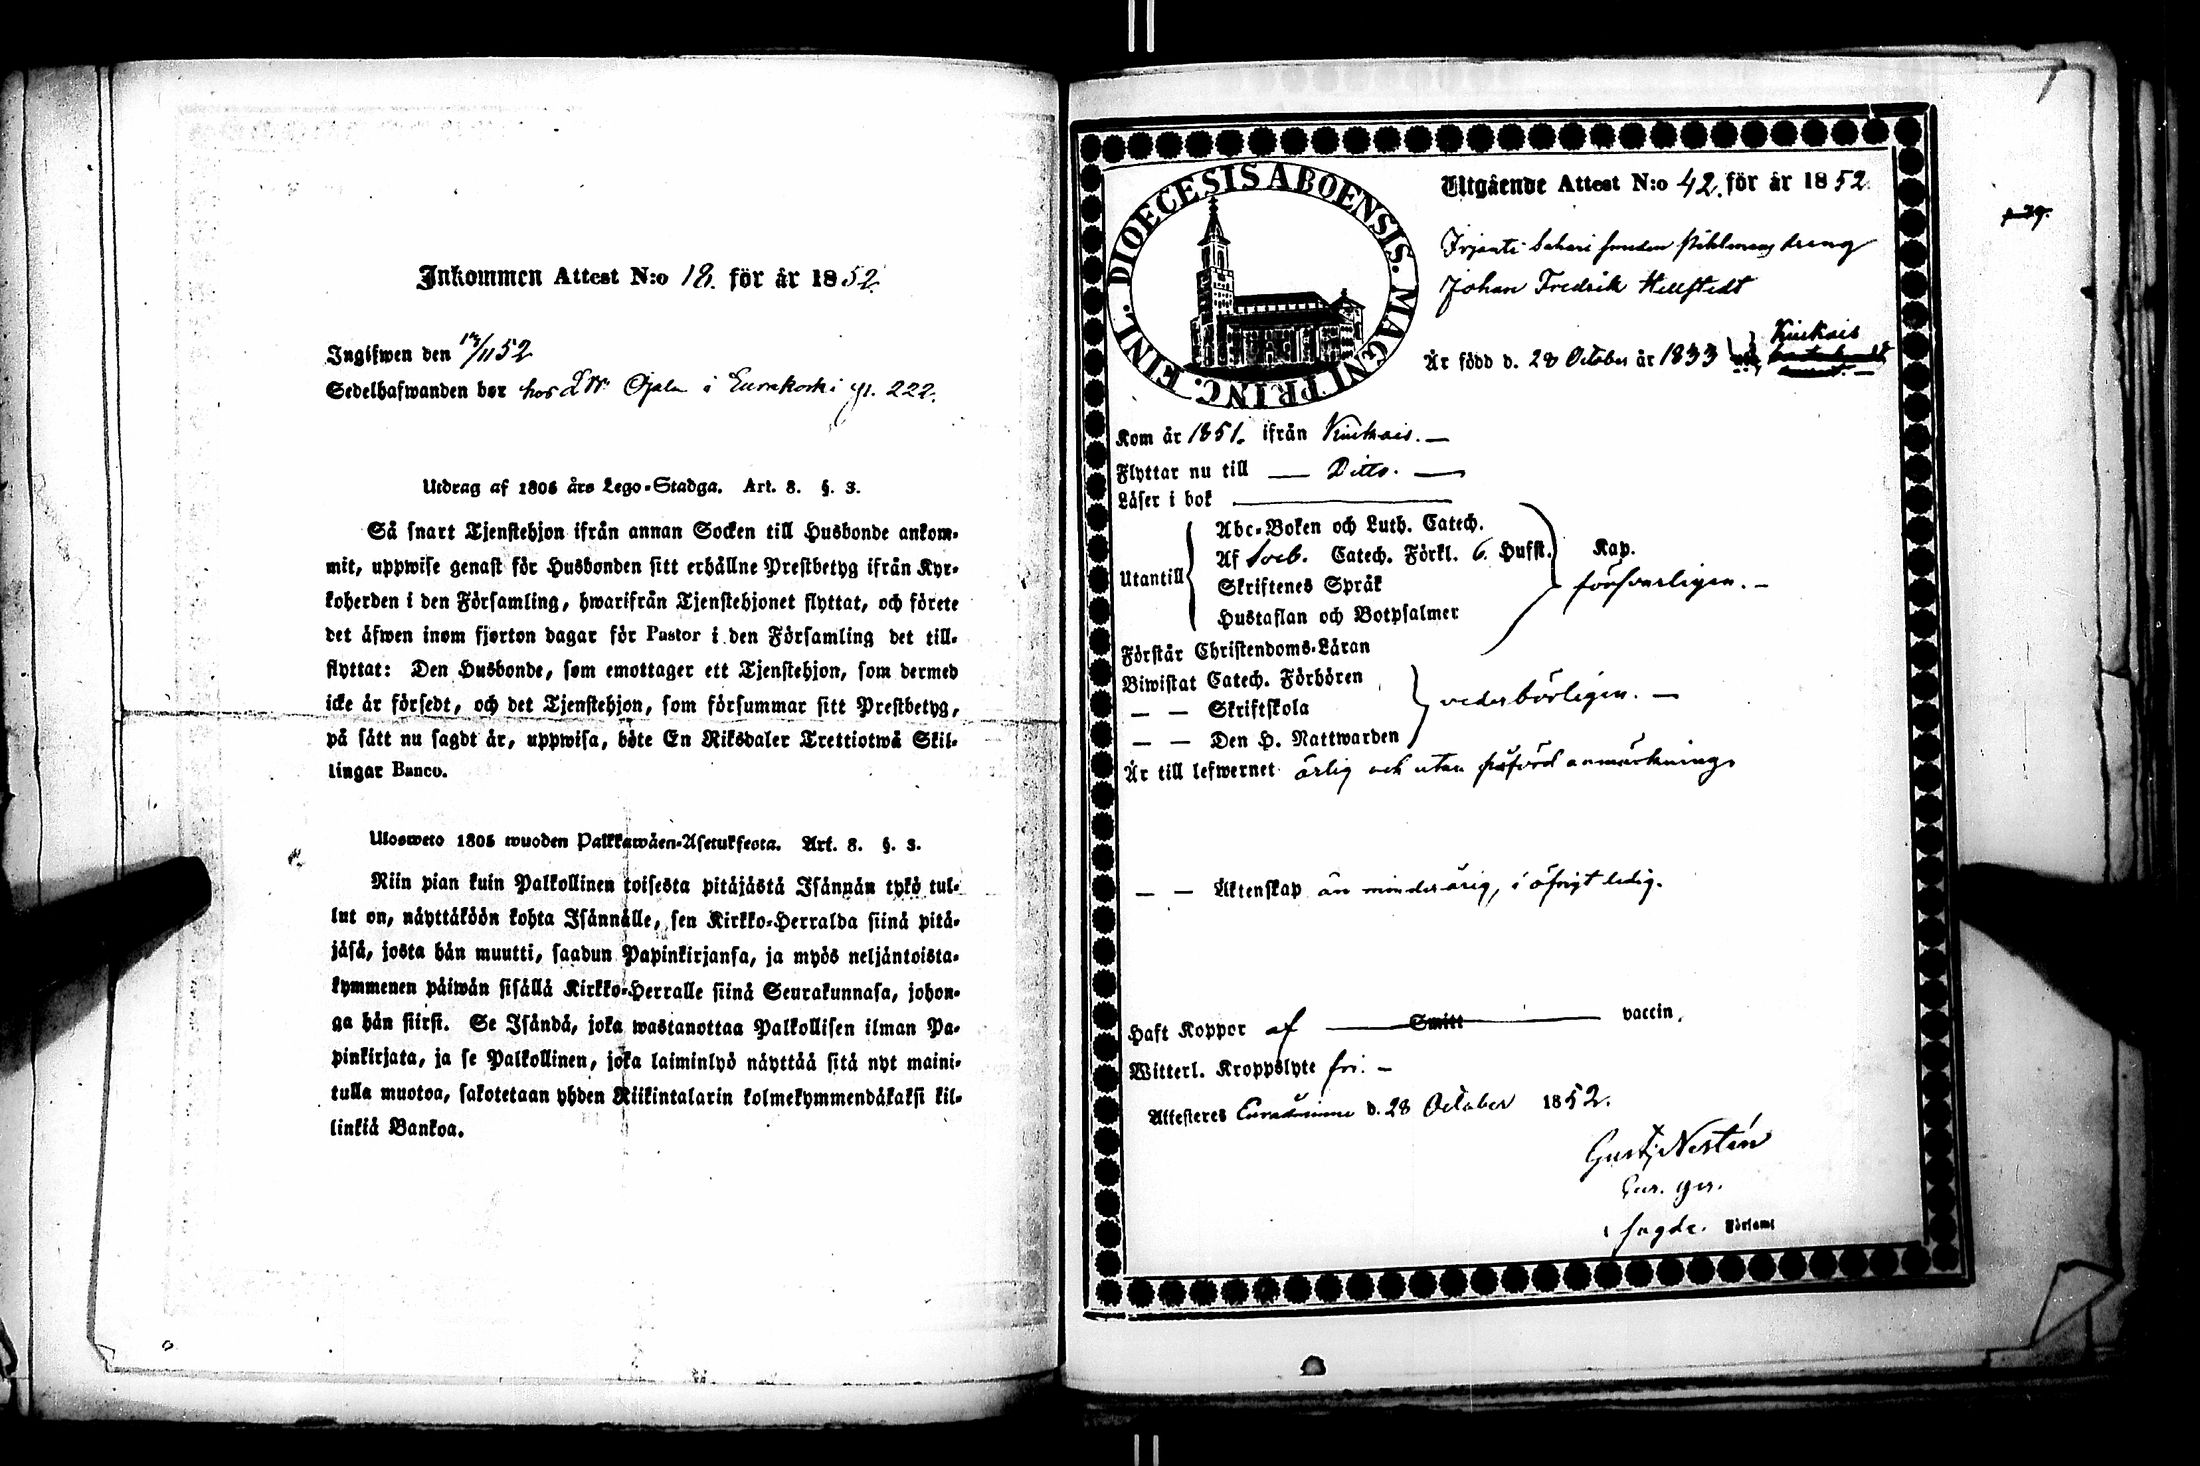 Inkommen Attest N:o 18. för år 1852.
Ingifwen den 17/11 52
Sedelhafwanden bor hos LW Ojala i Eurakoski p. 222.
Utdrag af 1805 års Lego-Stadga. Art. 8. §. 3.
Så snart Tjenstehjon ifrån annan Socken till Husbonde ankom-
mit, uppwise genast för Husbonden sitt erhållne Prestbetyg ifrån Kyr-
koherden i den Församling, hwarifrån Tjenstehjonet flyttat, och förete
det äfwen inom fjorton dagar för Pastor i den Församling det till-
flyttat: Den Husbonde, som emottager ett Tjenstehjon, som dermed
icke är försedt, och det Tjenstehjon, som försummar sitt Prestbetyg,
på sätt nu sagdt är, uppwisa, böte En Riksdaler Trettiotwå Skil-
lingar Banco.
Ulosweto 1805 wuoden Palkkawäen-Asetuksesta. Art. 8. §. 3.
Niin pian kuin Palkollinen toisesta pitäjästä Isännän tykö tul-
lut on, näyttäköön kohta Isännälle, sen Kirkko-Herralda siinä pitä-
jäsä, josta hän muutti, saadun Papinkirjansa, ja myös neljäntoista-
kymmenen päiwän sisällä Kirkko-Herralle siinä Seurakunnasa, johon-
ga hän siirsi. Se Isändä, joka wastanottaa Palkollisen ilman Pa-
pinkirjata, ja se Palkollinen, joka laiminlyö näyttää sitä nyt maini-
tulla muotoa, sakotetaan yhden Riikintalarin kolmekymmendäkaksi kil-
linkiä Bankoa.
DIOECESIS ABOENSIS. MAGNI PRINC. FINL.
Utgående Attest N:o 42. för år 1852.
Irjanti Sahari dreng
Johan Fredrik Hellstedt
Är född d. 28 October år 1833 Kiukais
Kom år 1851. ifrån Kiukais. —
Flyttar nu till — Ditto. —
Läser i bok
Utantill
Abc-Boken och Luth. Catech.
Af Sveb. Catech. Förkl. 6. Hufst. Kap.
Skriftenes Språk
Hustaflan och Botpsalmer
försvarligen. —
Förstår Christendoms-Läran
Biwistat Catech. Förhören
— — Skriftskola
— — Den H. Nattwarden
vederbörligen. —
Är till lefwernet ärlig och utan påförd anmärkning
— — Äktenskap än minderårig, i öfrigt ledig.
Haft Koppor af — Smitt — vaccin.
Witterl. Kroppslyte fri. —
Attesteres Euraåminne d. 28 October 1852.
Gust. Nestén
i sagde. Församl